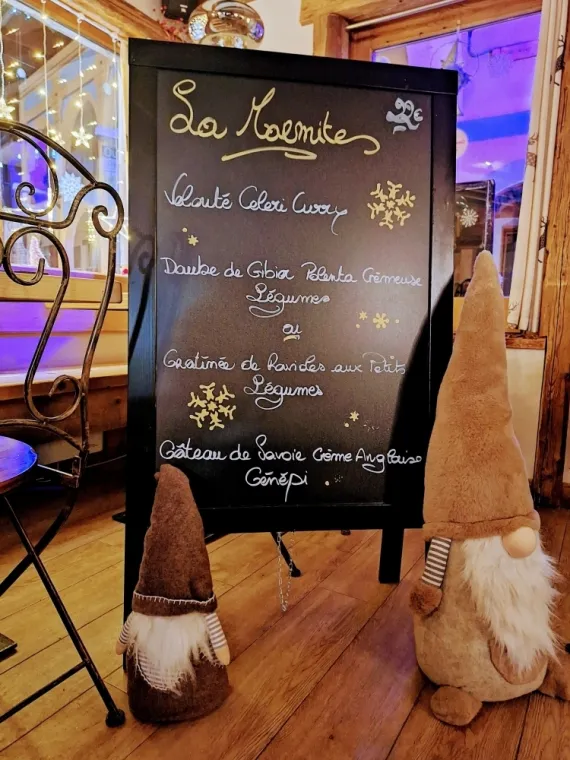 La Marmite
22€
Velouté Celeri Curry
Daube de Gibier Polenta Crémeuse
Légumes
ou
Gratinée de Ravioles aux Petits
Légumes
Gâteau de Savoie Crème Anglaise
Génépi